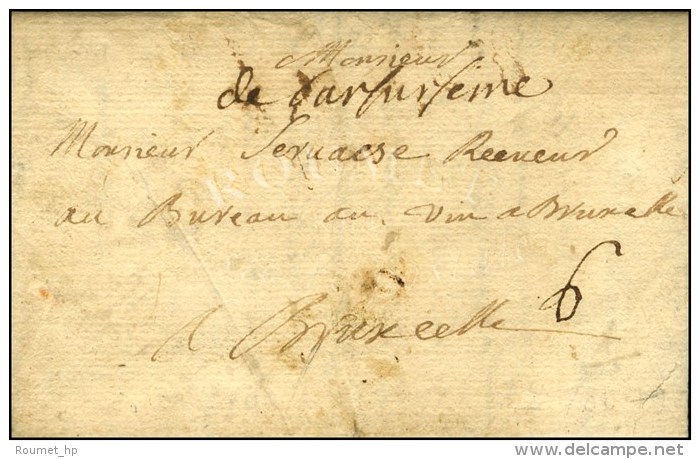 Monsieur
de Barsurseine
Monsieur Seruaese Receueur
au Bureau au vin a Bruxelle
6
A Bruxcelle
ROUMET
Roumet_hp
www.delcampe.net